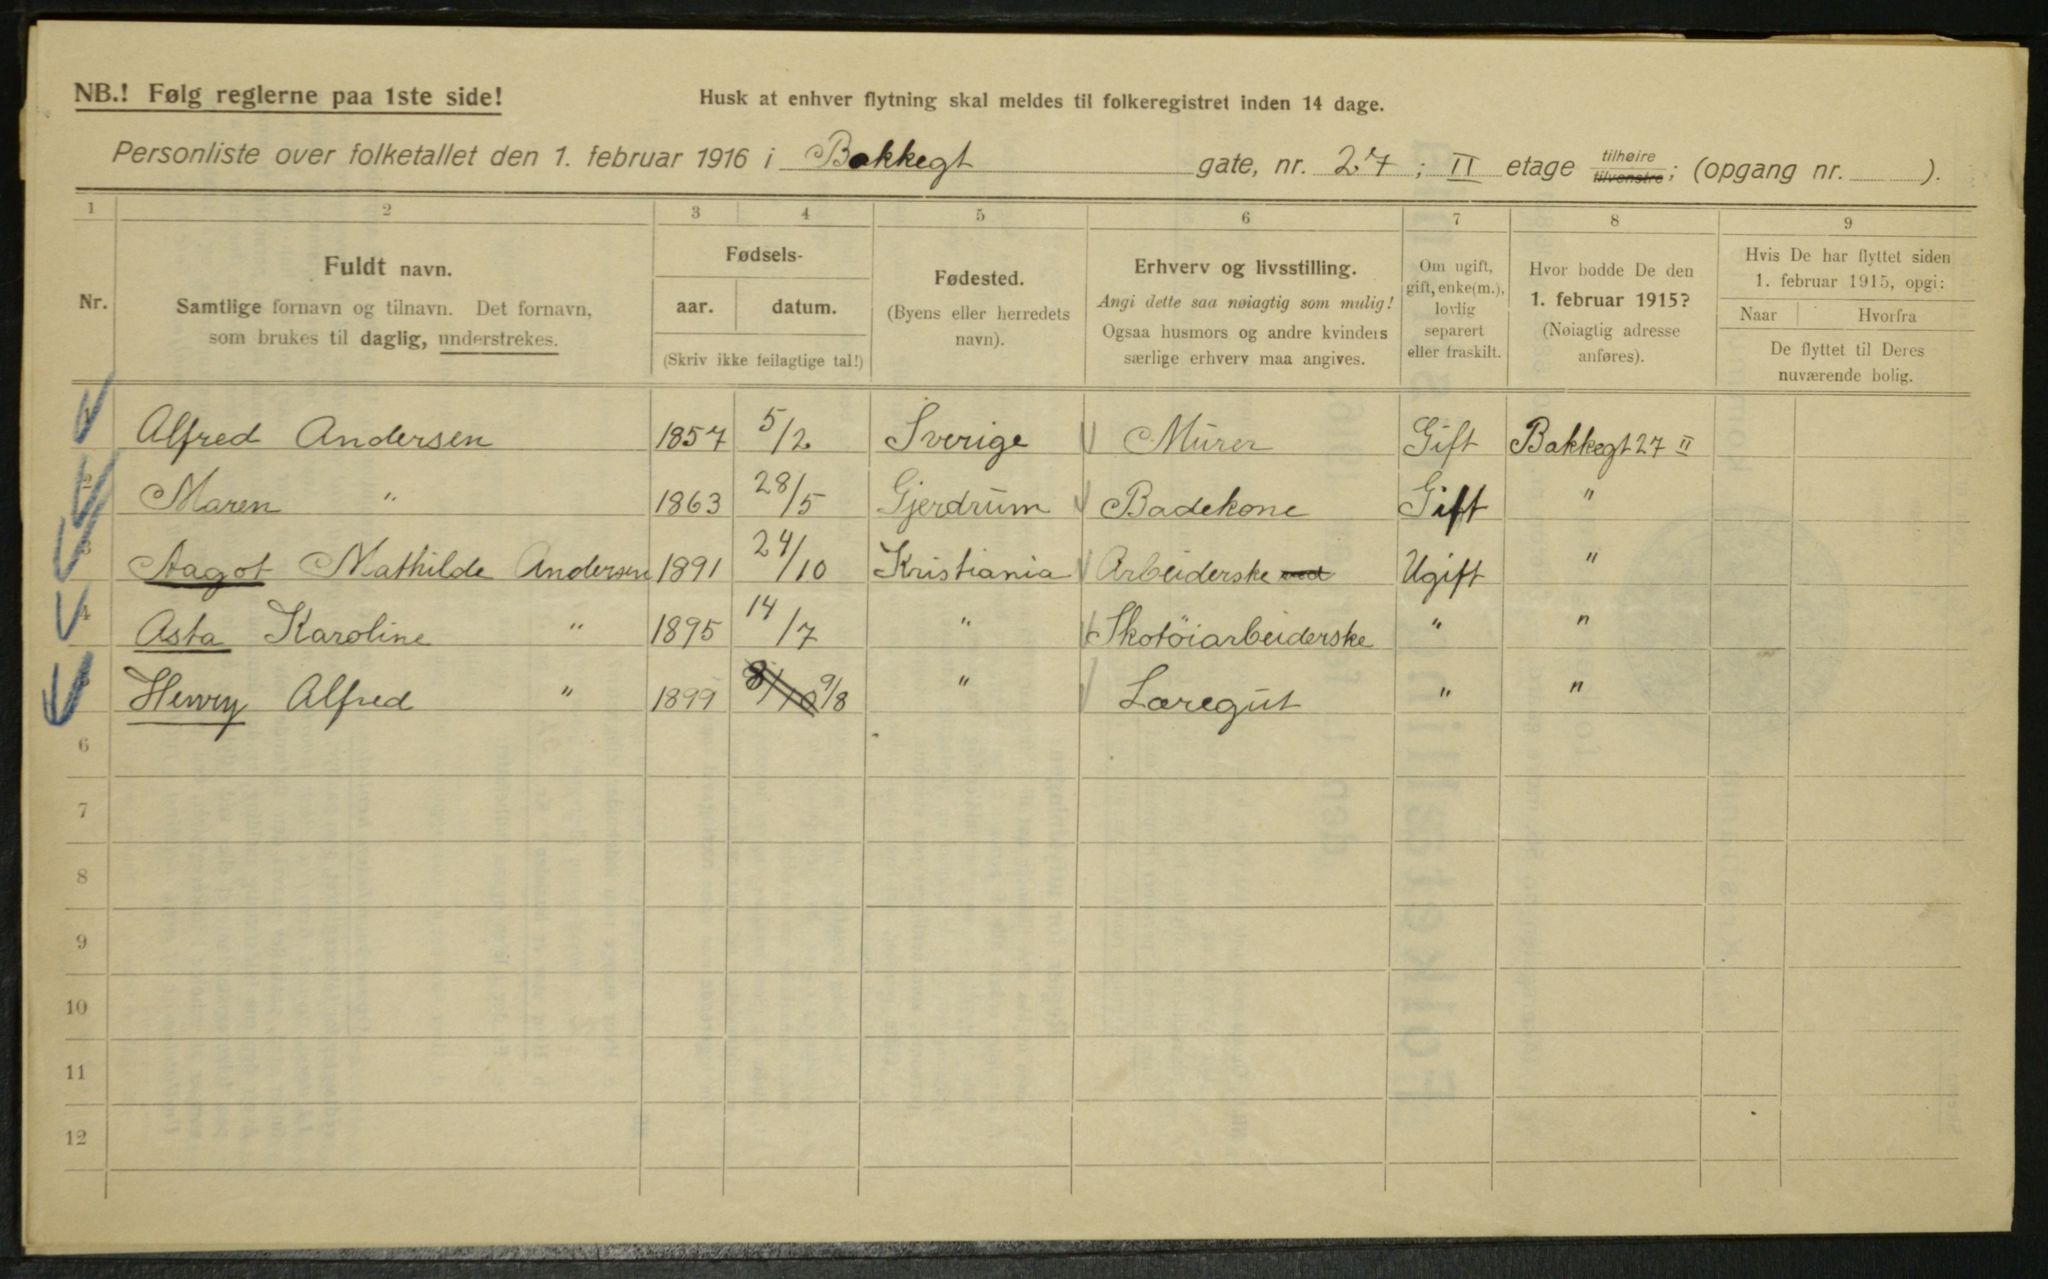 NB.! Følg reglerne paa 1ste side!
Husk at enhver flytning skal meldes til folkeregistret inden 14 dage.
Personliste over folketallet den 1. februar 1916 i Bakkegt gate, nr. 27; II etage tilhøire tilvenstre; (opgang nr. ).
1 2 3 4 5 6 7 8 9
Nr.
Fuldt navn.
Samtlige fornavn og tilnavn. Det fornavn,
som brukes til daglig, understrekes.
Fødsels-
aar. datum.
(Skriv ikke feilagtige tal!)
Fødested.
(Byens eller herredets
navn).
Erhverv og livsstilling.
Angi dette saa nøiagtig som mulig!
Ogsaa husmors og andre kvinders
særlige erhverv maa angives.
Om ugift,
gift, enke(m.),
lovlig
separert
eller fraskilt.
Hvor bodde De den
1. februar 1915?
(Nøiagtig adresse
anføres).
Hvis De har flyttet siden
1. februar 1915, opgi:
Naar Hvorfra
De flyttet til Deres
nuværende bolig.
1 Alfred Andersen 1857 5/2 Sverige Murer Gift Bakkegt 27 II
2 Maren " 1863 28/5 Gjerdrum Badekone Gift "
3 Aagot Mathilde Andersen 1891 24/10 Kristiania Arbeiderske ved Ugift "
4 Asta Karoline " 1895 14/7 " Skotöiarbeiderske " "
5 Henry Alfred " 1899 8/10 9/8 " Læregut " "
6
7
8
9
10
11
12